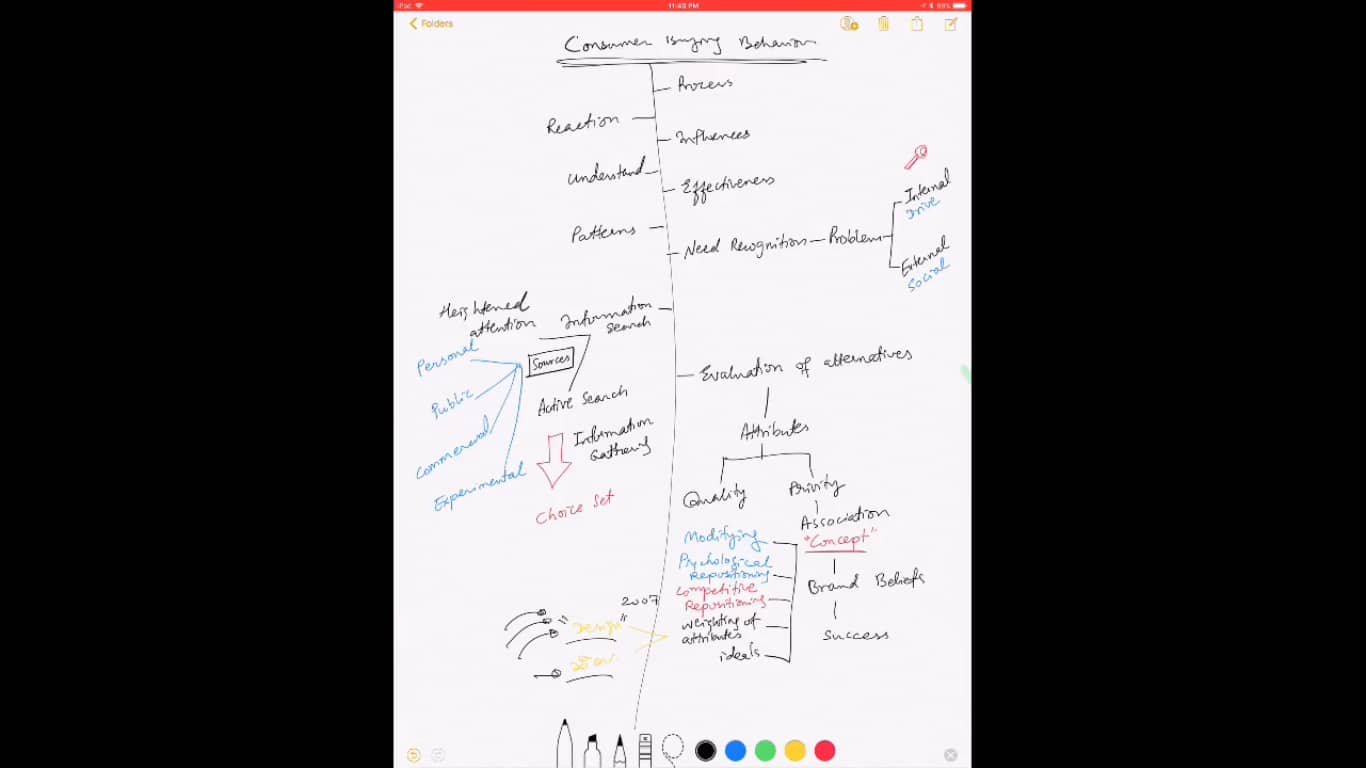 iPad
11:43 PM
99%
Folders
Consumer Buying Behavior
Process
Reaction
Influences
Understand
Effectiveness
Patterns
Need Recognition
Problem
Internal
Drive
External
Social
Heightened
attention
Information
Search
Sources
Personal
Public
Commercial
Experimental
Active Search
Information
Gathering
Choice Set
Evaluation of alternatives
Attributes
Quality
Privity
Association
"Concept"
Brand Beliefs
Success
Modifying
Psychological
Repositioning
Competitive
Repositioning
weighting of
attributes
ideals
2007
"Design"